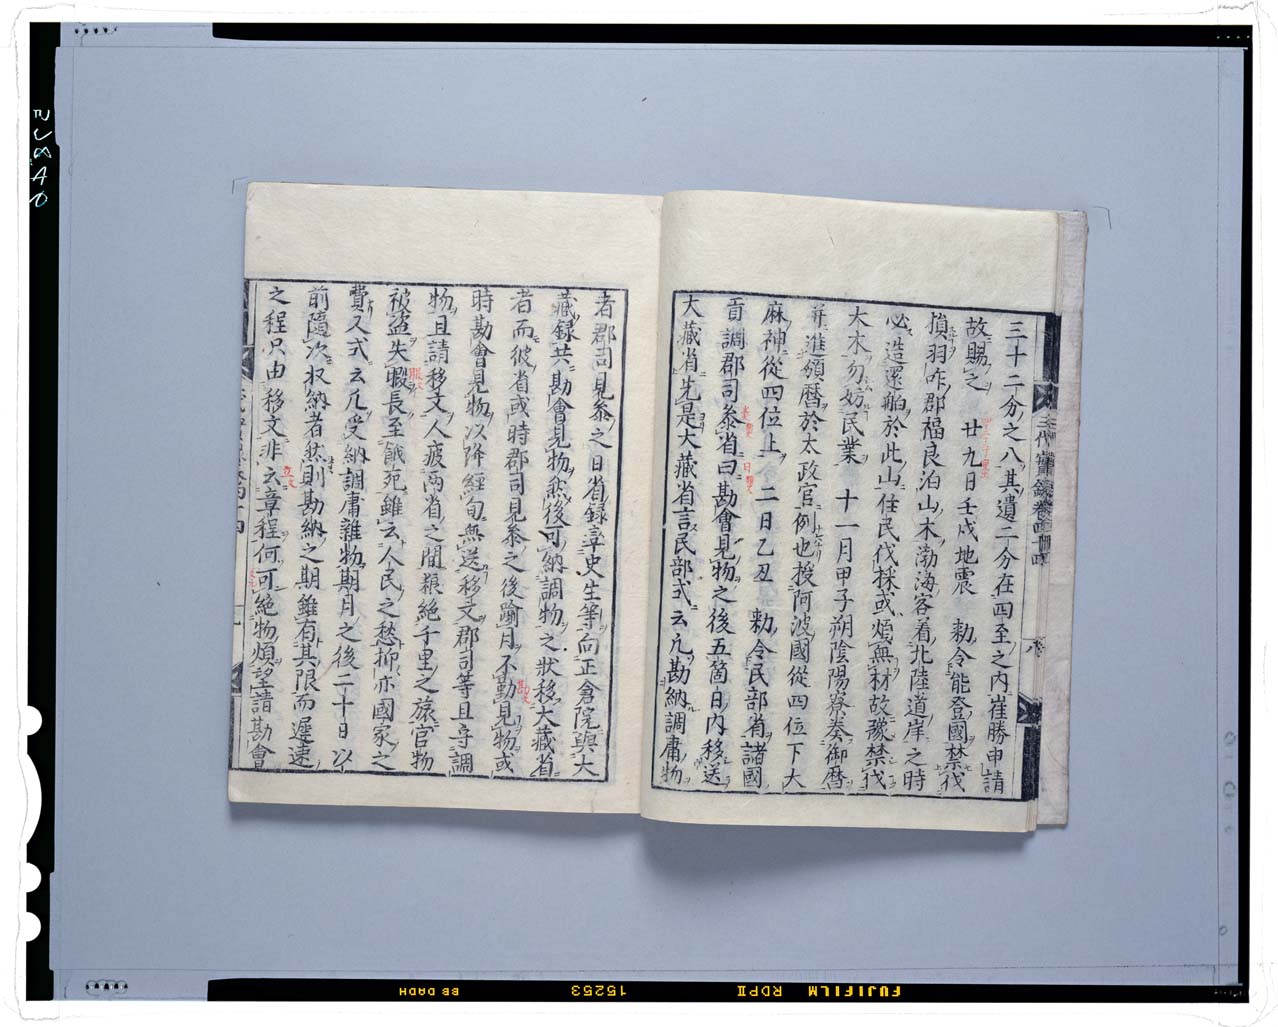 三十二分之八其遺二分在四至之内崔勝申請
故賜之　廿九日壬戌地震　勅令能登國禁伐
損羽咋郡福良泊山木渤海客着北陸道岸之時
必造還舶於此山住民伐採或煩無材故豫禁伐
大木勿妨民業　十一月甲子朔陰陽寮奏御暦
并進頒暦於太政官例也授阿波國從四位下大
麻神從四位上　二日乙丑　勅令民部省諸國
貢調郡司參省曰勘會見物之後五箇日内移送
大藏省先是大藏省言民部式云凡勘納調庸物
者郡司見參之日省録率史生等向正倉院與大
藏録共勘會見物然後可納調物之状移大藏省
者而彼省或時郡司見參之後踰月不勤見物或
時勘會見物以降經旬無送移文郡司等且守調
物且請移文人疲兩省之間粮絶千里之旅官物
被盗失暇長至餓死雖云人民之愁抑亦國家之
費又式云凡受納調庸雜物期月之後二十日以
前隨次収納者然則勘納之期雖有其限而遲速
之程只由移文非云章程何可絶物煩望請勘會
三代實録卷四十四
八
FUJIFILM RDPII 15253 BB DADH